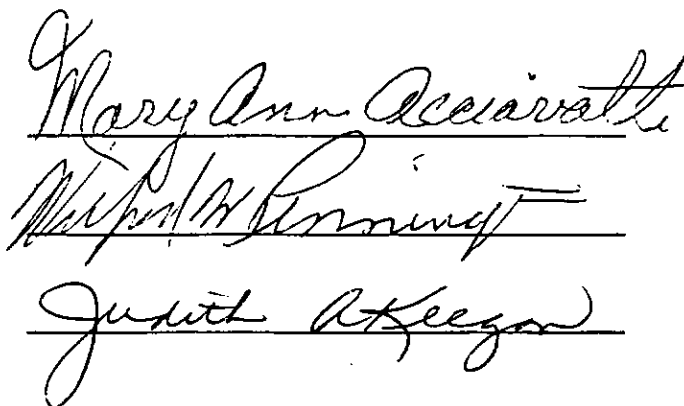 Mary Ann Acciavatti
W Penningt
Judith A Keegan